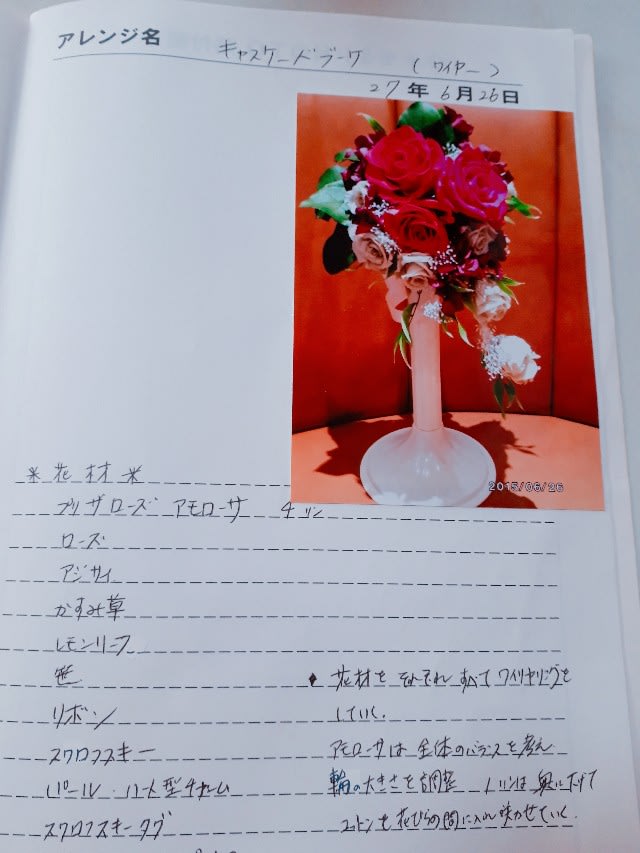 アレンジ名 キャスケードブーケ (ワイヤー)
27年 6月26日
2015/06/26
※花材※
プリザローズ アモローサ 4リン
ローズ
アジサイ
かすみ草
レモンリーフ
笹
リボン
スワロフスキー
パール ハート型チャーム
スワロフスキータグ
♦ 花材をそれぞれすべてワイヤリングを
していく。
アモローサは全体のバランスを考え
輪の大きさを調整 1リンは奥に下げて
コットンを花びらの間に入れ咲かせていく.